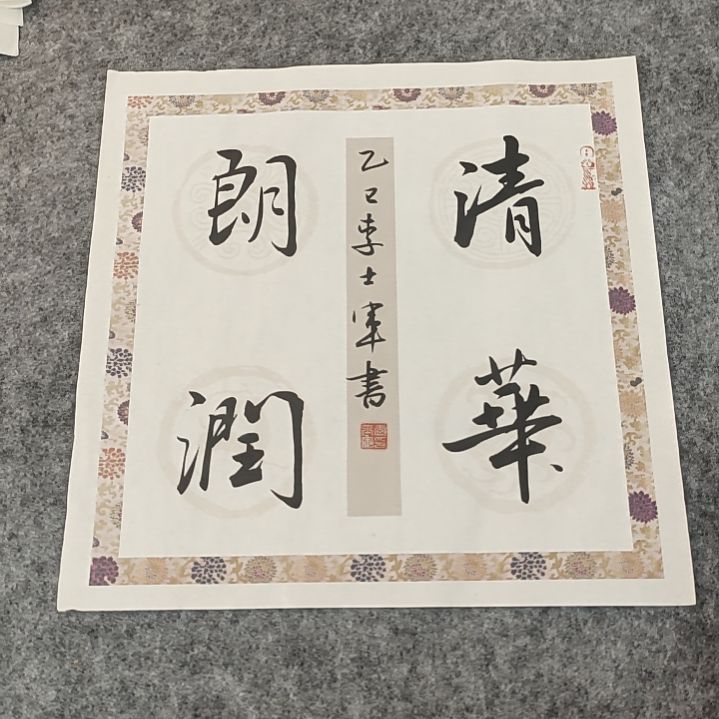 清華
朗潤
乙巳李士軍書